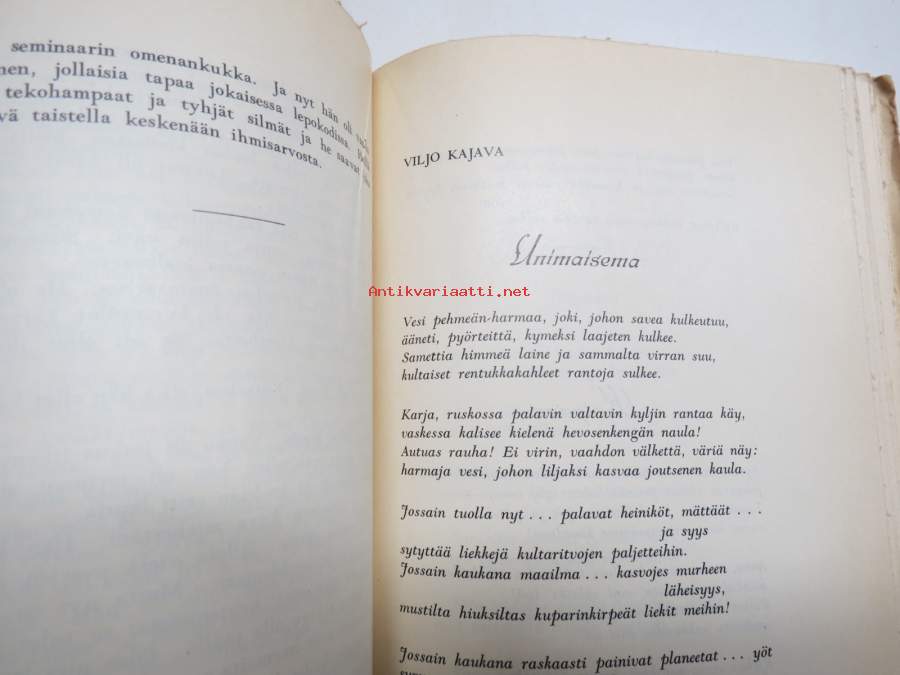 seminaarin omenankukka. Ja nyt hän oli
nen, jollaisia tapaa jokaisessa lepokodissa.
tekohampaat ja tyhjät silmät ja he saavat
vä taistella keskenään ihmisarvosta.
VILJO KAJAVA
Unimaisema
Antikvariaatti.net
Vesi pehmeän-harmaa, joki, johon savea kulkeutuu,
ääneti, pyörteittä, kymeksi laajeten kulkee.
Samettia himmeä laine ja sammalta virran suu,
kultaiset rentukkakahleet rantoja sulkee.
Karja, ruskossa palavin valtavin kyljin rantaa käy,
vaskessa kalisee kielenä hevosenkengän naula!
Autuas rauha! Ei virin, vaahdon välkettä, väriä näy:
harmaja vesi, johon liljaksi kasvaa joutsenen kaula.
Jossain tuolla nyt . . . palavat heiniköt, mättäät . . .
ja syys
sytyttää liekkejä kultaritvojen paljetteihin.
Jossain kaukana maailma . . . kasvojes murheen
läheisyys,
mustilta hiuksiltas kuparinkirpeät liekit meihin!
Jossain kaukana raskaasti painivat planeetat . . . yöt